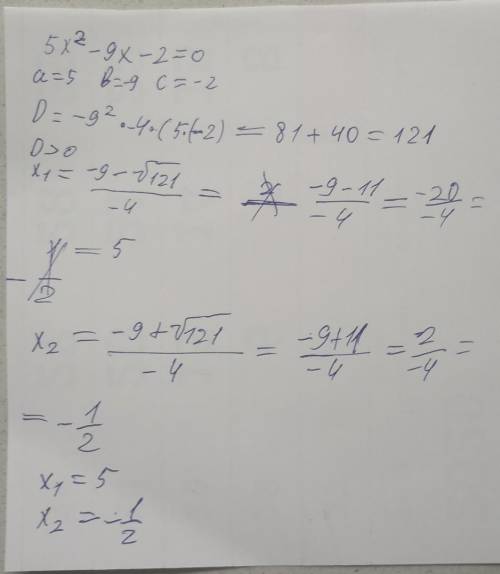 5x² - 9x - 2 = 0
a = 5 b = -9 c = -2
D = -9² · -4 · (5 · (-2) = 81 + 40 = 121
D > 0
x₁ = (-9 - √121)/(-4) = (-9 - 11)/(-4) = (-20)/(-4) =
= 5
x₂ = (-9 + √121)/(-4) = (-9 + 11)/(-4) = 2/(-4) =
= - 1/2
x₁ = 5
x₂ = - 1/2